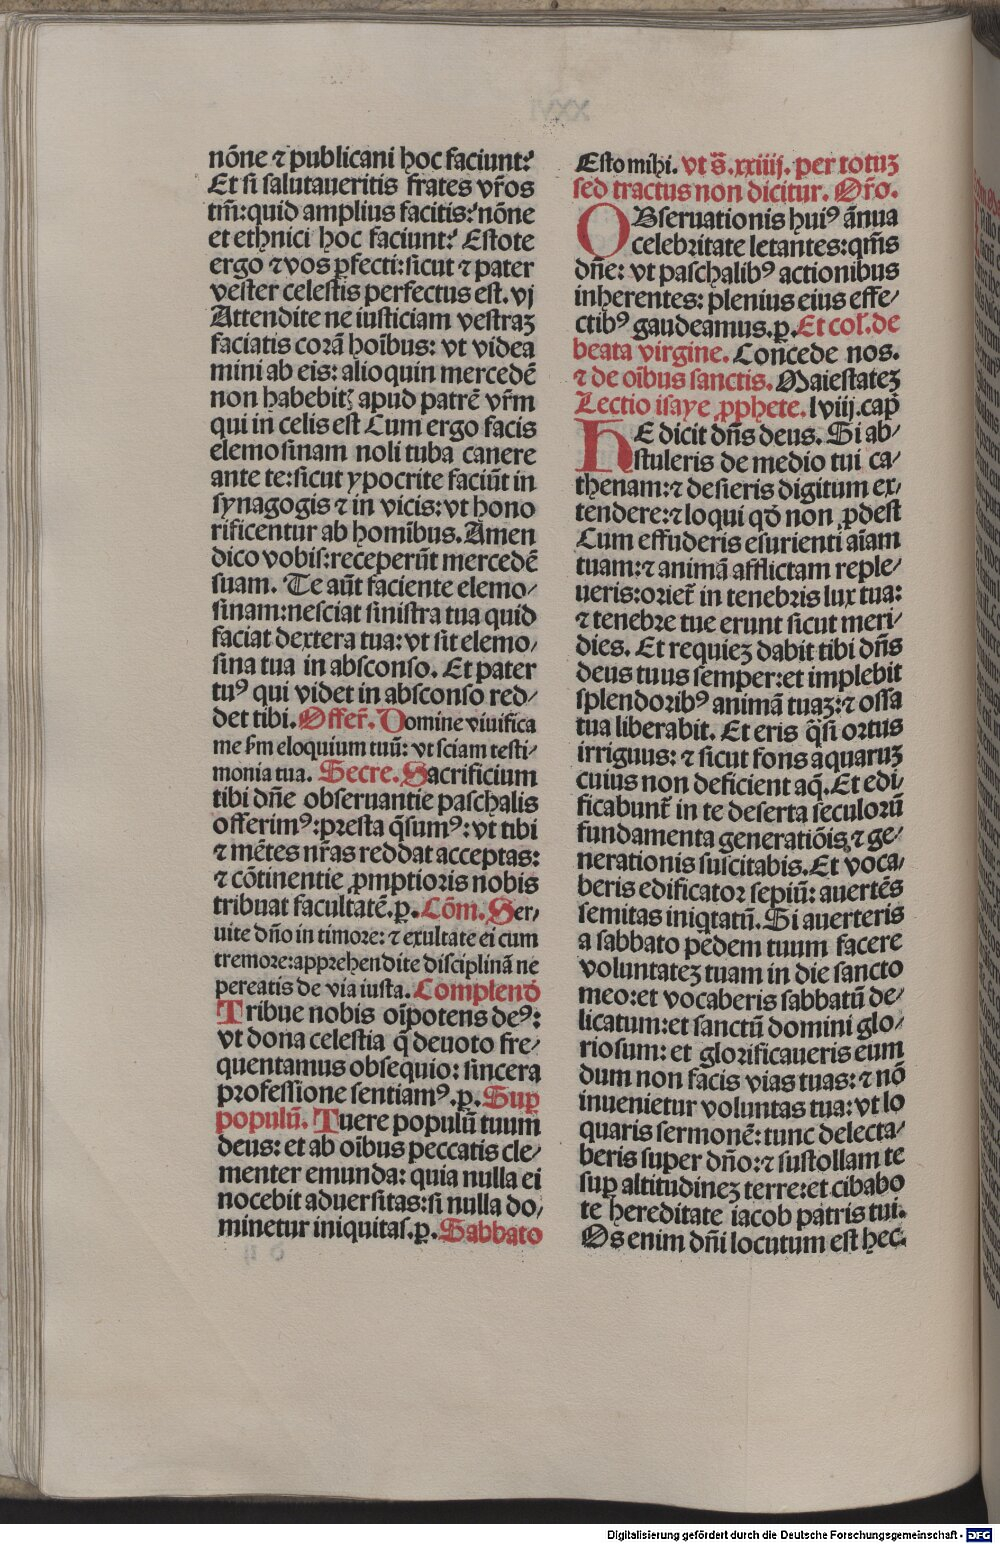 nōne ⁊ publicani hoc faciunt?
Et si salutaueritis frates vr̃os
tm̃: quid amplius facitis? nōne
et ethnici hoc faciunt? Estote
ergo ⁊ vos ꝑfecti: sicut ⁊ pater
vester celestis perfectus est. vj
Attendite ne iusticiam vestraꝫ
faciatis corā hoı̄bus: vt videa
mini ab eis: alioquin mercedē
non habebitꝭ apud patrē vr̃m
qui in celis est Cum ergo facis
elemosinam noli tuba canere
ante te: sicut ypocrite faciūt in
synagogis ⁊ in vicis: vt hono
rificentur ab homı̄bus. Amen
dico vobis: receperūt mercedē
suam. Te aūt faciente elemo⸗
sinam: nesciat sinistra tua quid
faciat dextera tua: vt sit elemo⸗
sina tua in absconso. Et pater
tuꝰ qui videt in absconso red⸗
det tibi. Offer̃. Domine viuifica
me s̃m eloquium tuū: vt sciam testi⸗
monia tua. Secre. Sacrificium
tibi dn̄e obseruantie paschalis
offerimꝰ: presta q̄sumꝰ: vt tibi
⁊ mētes nr̃as reddat acceptas:
⁊ cōtinentie ꝓmptioris nobis
tribuat facultatē. ꝑ. Cōm. Ser⸗
uite dn̄o in timore: ⁊ exultate ei cum
tremore: apprehendite disciplinā ne
pereatis de via iusta. Complend̄
Tribue nobis oı̄potens deꝰ:
vt dona celestia q̄ deuoto fre⸗
quentamus obsequio: sincera
professione sentiamꝰ. ꝑ. Suꝑ
populū. Tuere populū tuum
deus: et ab oı̄bus peccatis cle⸗
menter emunda: quia nulla ei
nocebit aduersitas: si nulla do⸗
minetur iniquitas. ꝑ. Sabbato
Esto mihi. vt s̄. xxiiij. per totuꝫ
sed tractus non dicitur. Or̃o.
OBseruationis huiꝰ ānua
celebritate letantes: qm̄s
dn̄e: vt paschalibꝰ actionibus
inherentes: plenius eius effe⸗
ctibꝰ gaudeamus. ꝑ. Et col̄. de
beata virgine. Concede nos.
⁊ de oı̄bus sanctis. Maiestateꝫ
Lectio isaye ꝓphete. lviij. cap̄
HE dicit dn̄s deus. Si ab⸗
stuleris de medio tui ca⸗
thenam: ⁊ desieris digitum ex⸗
tendere: ⁊ loqui qd̄ non ꝓdest
Cum effuderis esurienti aı̄am
tuam: ⁊ animā afflictam reple⸗
ueris: oriet̃ in tenebris lux tua:
⁊ tenebre tue erunt sicut meri⸗
dies. Et requieꝫ dabit tibi dn̄s
deus tuus semper: et implebit
splendoribꝰ animā tuaꝫ: ⁊ ossa
tua liberabit. Et eris q̄si ortus
irriguus: ⁊ sicut fons aquaruꝫ
cuius non deficient aq̄. Et edi⸗
ficabunt̃ in te deserta seculorū
fundamenta generatiōis ⁊ ge⸗
nerationis suscitabis. Et voca⸗
beris edificator sepiū: auertēs
semitas iniqtatū. Si auerteris
a sabbato pedem tuum facere
voluntateꝫ tuam in die sancto
meo: et vocaberis sabbatū de⸗
licatum: et sanctū domini glo⸗
riosum: et glorificaueris eum
dum non facis vias tuas: ⁊ nō
inuenietur voluntas tua: vt lo
quaris sermonē: tunc delecta⸗
beris super dn̄o: ⁊ sustollam te
suꝑ altitudineꝫ terre: et cibabo
te hereditate iacob patris tui.
Os enim dn̄i locutum est hec.
Digitalisierung gefördert durch die Deutsche Forschungsgemeinschaft - DFG